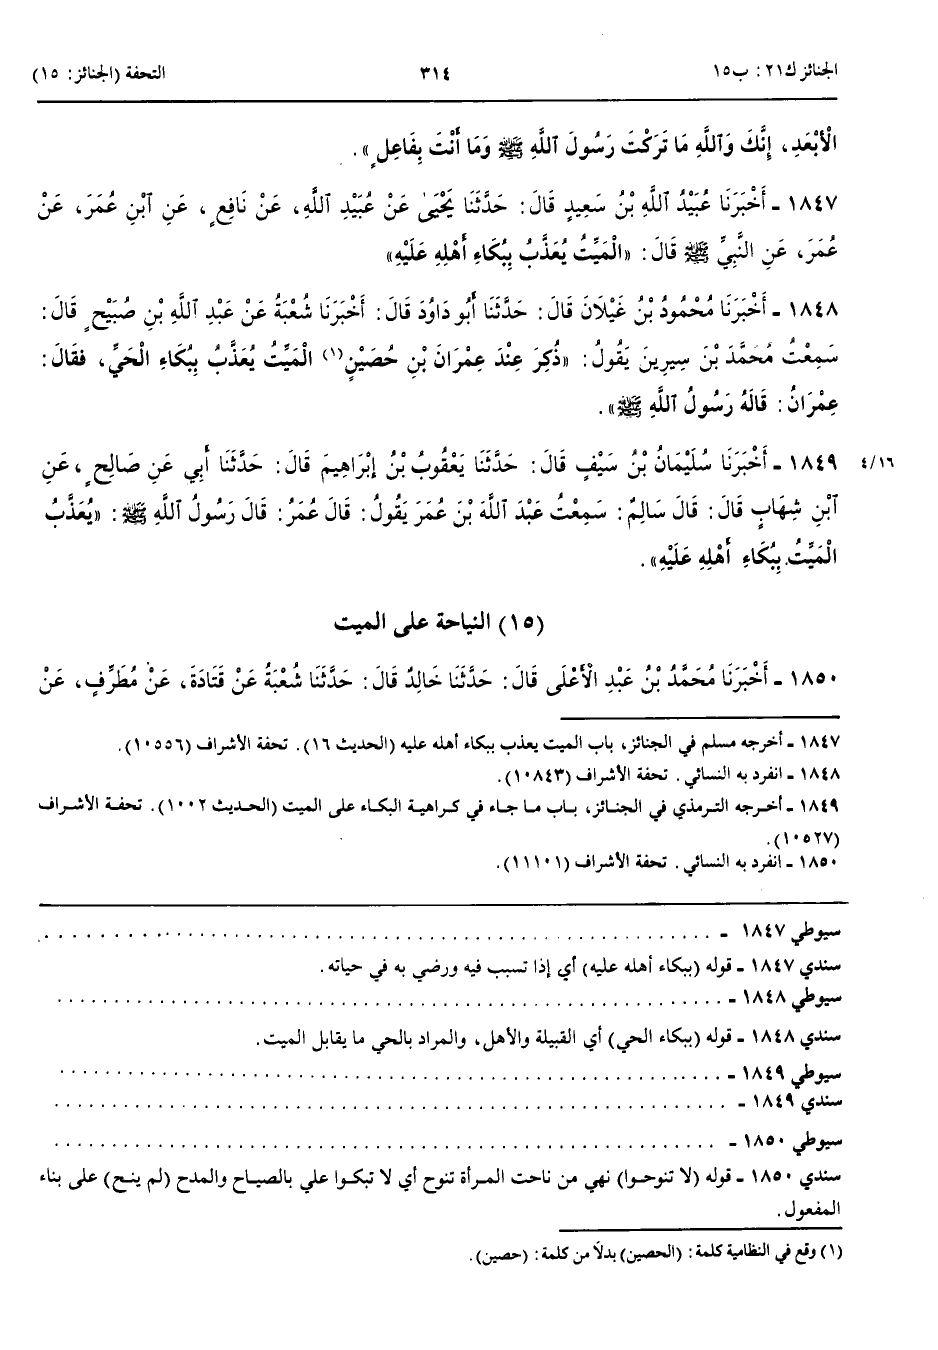 الجنائز ك٢١: ب١٥ ٣١٤ التحفة (الجنائز: ١٥)
الْأَبْعَدِ، إِنَّكَ وَٱللَّهِ مَا تَرَكْتَ رَسُولَ ٱللَّهِ ﷺ وَمَا أَنْتَ بِفَاعِلٍ».
١٨٤٧ ـ أَخْبَرَنَا عُبَيْدُ ٱللَّهِ بْنُ سَعِيدٍ قَالَ: حَدَّثَنَا يَحْيَىٰ عَنْ عُبَيْدِ ٱللَّهِ، عَنْ نَافِعٍ، عَنِ ٱبْنِ عُمَرَ، عَنْ
عُمَرَ، عَنِ النَّبِيِّ ﷺ قَالَ: «الْمَيِّتُ يُعَذَّبُ بِبُكَاءِ أَهْلِهِ عَلَيْهِ»
١٨٤٨ ـ أَخْبَرَنَا مُحْمُودُ بْنُ غَيْلَانَ قَالَ: حَدَّثَنَا أَبُو دَاوُدَ قَالَ: أَخْبَرَنَا شُعْبَةُ عَنْ عَبْدِ ٱللَّهِ بْنِ صُبَيْحٍ قَالَ:
سَمِعْتُ مُحَمَّدَ بْنَ سِيرِينَ يَقُولُ: «ذُكِرَ عِنْدَ عِمْرَانَ بْنِ حُصَيْنٍ(١) الْمَيِّتُ يُعَذَّبُ بِبُكَاءِ الْحَيِّ، فَقَالَ:
عِمْرَانُ: قَالَهُ رَسُولُ ٱللَّهِ ﷺ».
١٨٤٩ ـ أَخْبَرَنَا سُلَيْمَانُ بْنُ سَيْفٍ قَالَ: حَدَّثَنَا يَعْقُوبُ بْنُ إِبْرَاهِيمَ قَالَ: حَدَّثَنَا أَبِي عَنْ صَالِحٍ، عَنِ ٤/١٦
ٱبْنِ شِهَابٍ قَالَ: قَالَ سَالِمٌ: سَمِعْتُ عَبْدَ ٱللَّهِ بْنَ عُمَرَ يَقُولُ: قَالَ عُمَرُ: قَالَ رَسُولُ ٱللَّهِ ﷺ: «يُعَذَّبُ
الْمَيِّتُ بِبُكَاءِ أَهْلِهِ عَلَيْهِ».
(١٥) النياحة على الميت
١٨٥٠ ـ أَخْبَرَنَا مُحَمَّدُ بْنُ عَبْدِ الْأَعْلَى قَالَ: حَدَّثَنَا خَالِدٌ قَالَ: حَدَّثَنَا شُعْبَةُ عَنْ قَتَادَةَ، عَنْ مُطَرِّفٍ، عَنْ
١٨٤٧ ـ أخرجه مسلم في الجنائز، باب الميت يعذب ببكاء أهله عليه (الحديث ١٦). تحفة الأشراف (١٠٥٥٦).
١٨٤٨ ـ انفرد به النسائي. تحفة الأشراف (١٠٨٤٣).
١٨٤٩ ـ أخرجه الترمذي في الجنائز، باب ما جاء في كراهية البكاء على الميت (الحديث ١٠٠٢). تحفة الأشراف
(١٠٥٢٧).
١٨٥٠ ـ انفرد به النسائي. تحفة الأشراف (١١١٠١).
سيوطي ١٨٤٧ ـ ..........................................................
سندي ١٨٤٧ ـ قوله (ببكاء أهله عليه) أي إذا تسبب فيه ورضي به في حياته.
سيوطي ١٨٤٨ ـ ..........................................................
سندي ١٨٤٨ ـ قوله (ببكاء الحي) أي القبيلة والأهل، والمراد بالحي ما يقابل الميت.
سيوطي ١٨٤٩ ـ ..........................................................
سندي ١٨٤٩ ـ ..........................................................
سيوطي ١٨٥٠ ـ ..........................................................
سندي ١٨٥٠ ـ قوله (لا تنوحوا) نهي من ناحت المرأة تنوح أي لا تبكوا علي بالصياح والمدح (لم ينح) على بناء
المفعول.
(١) وقع في النظامية كلمة: (الحصين) بدلاً من كلمة: (حصين).